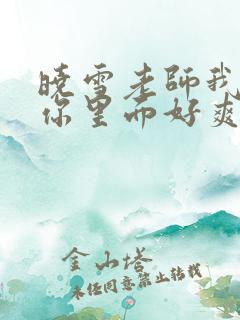 晓雪老师我
你里面好爽
金山塔
未经同意禁止转载